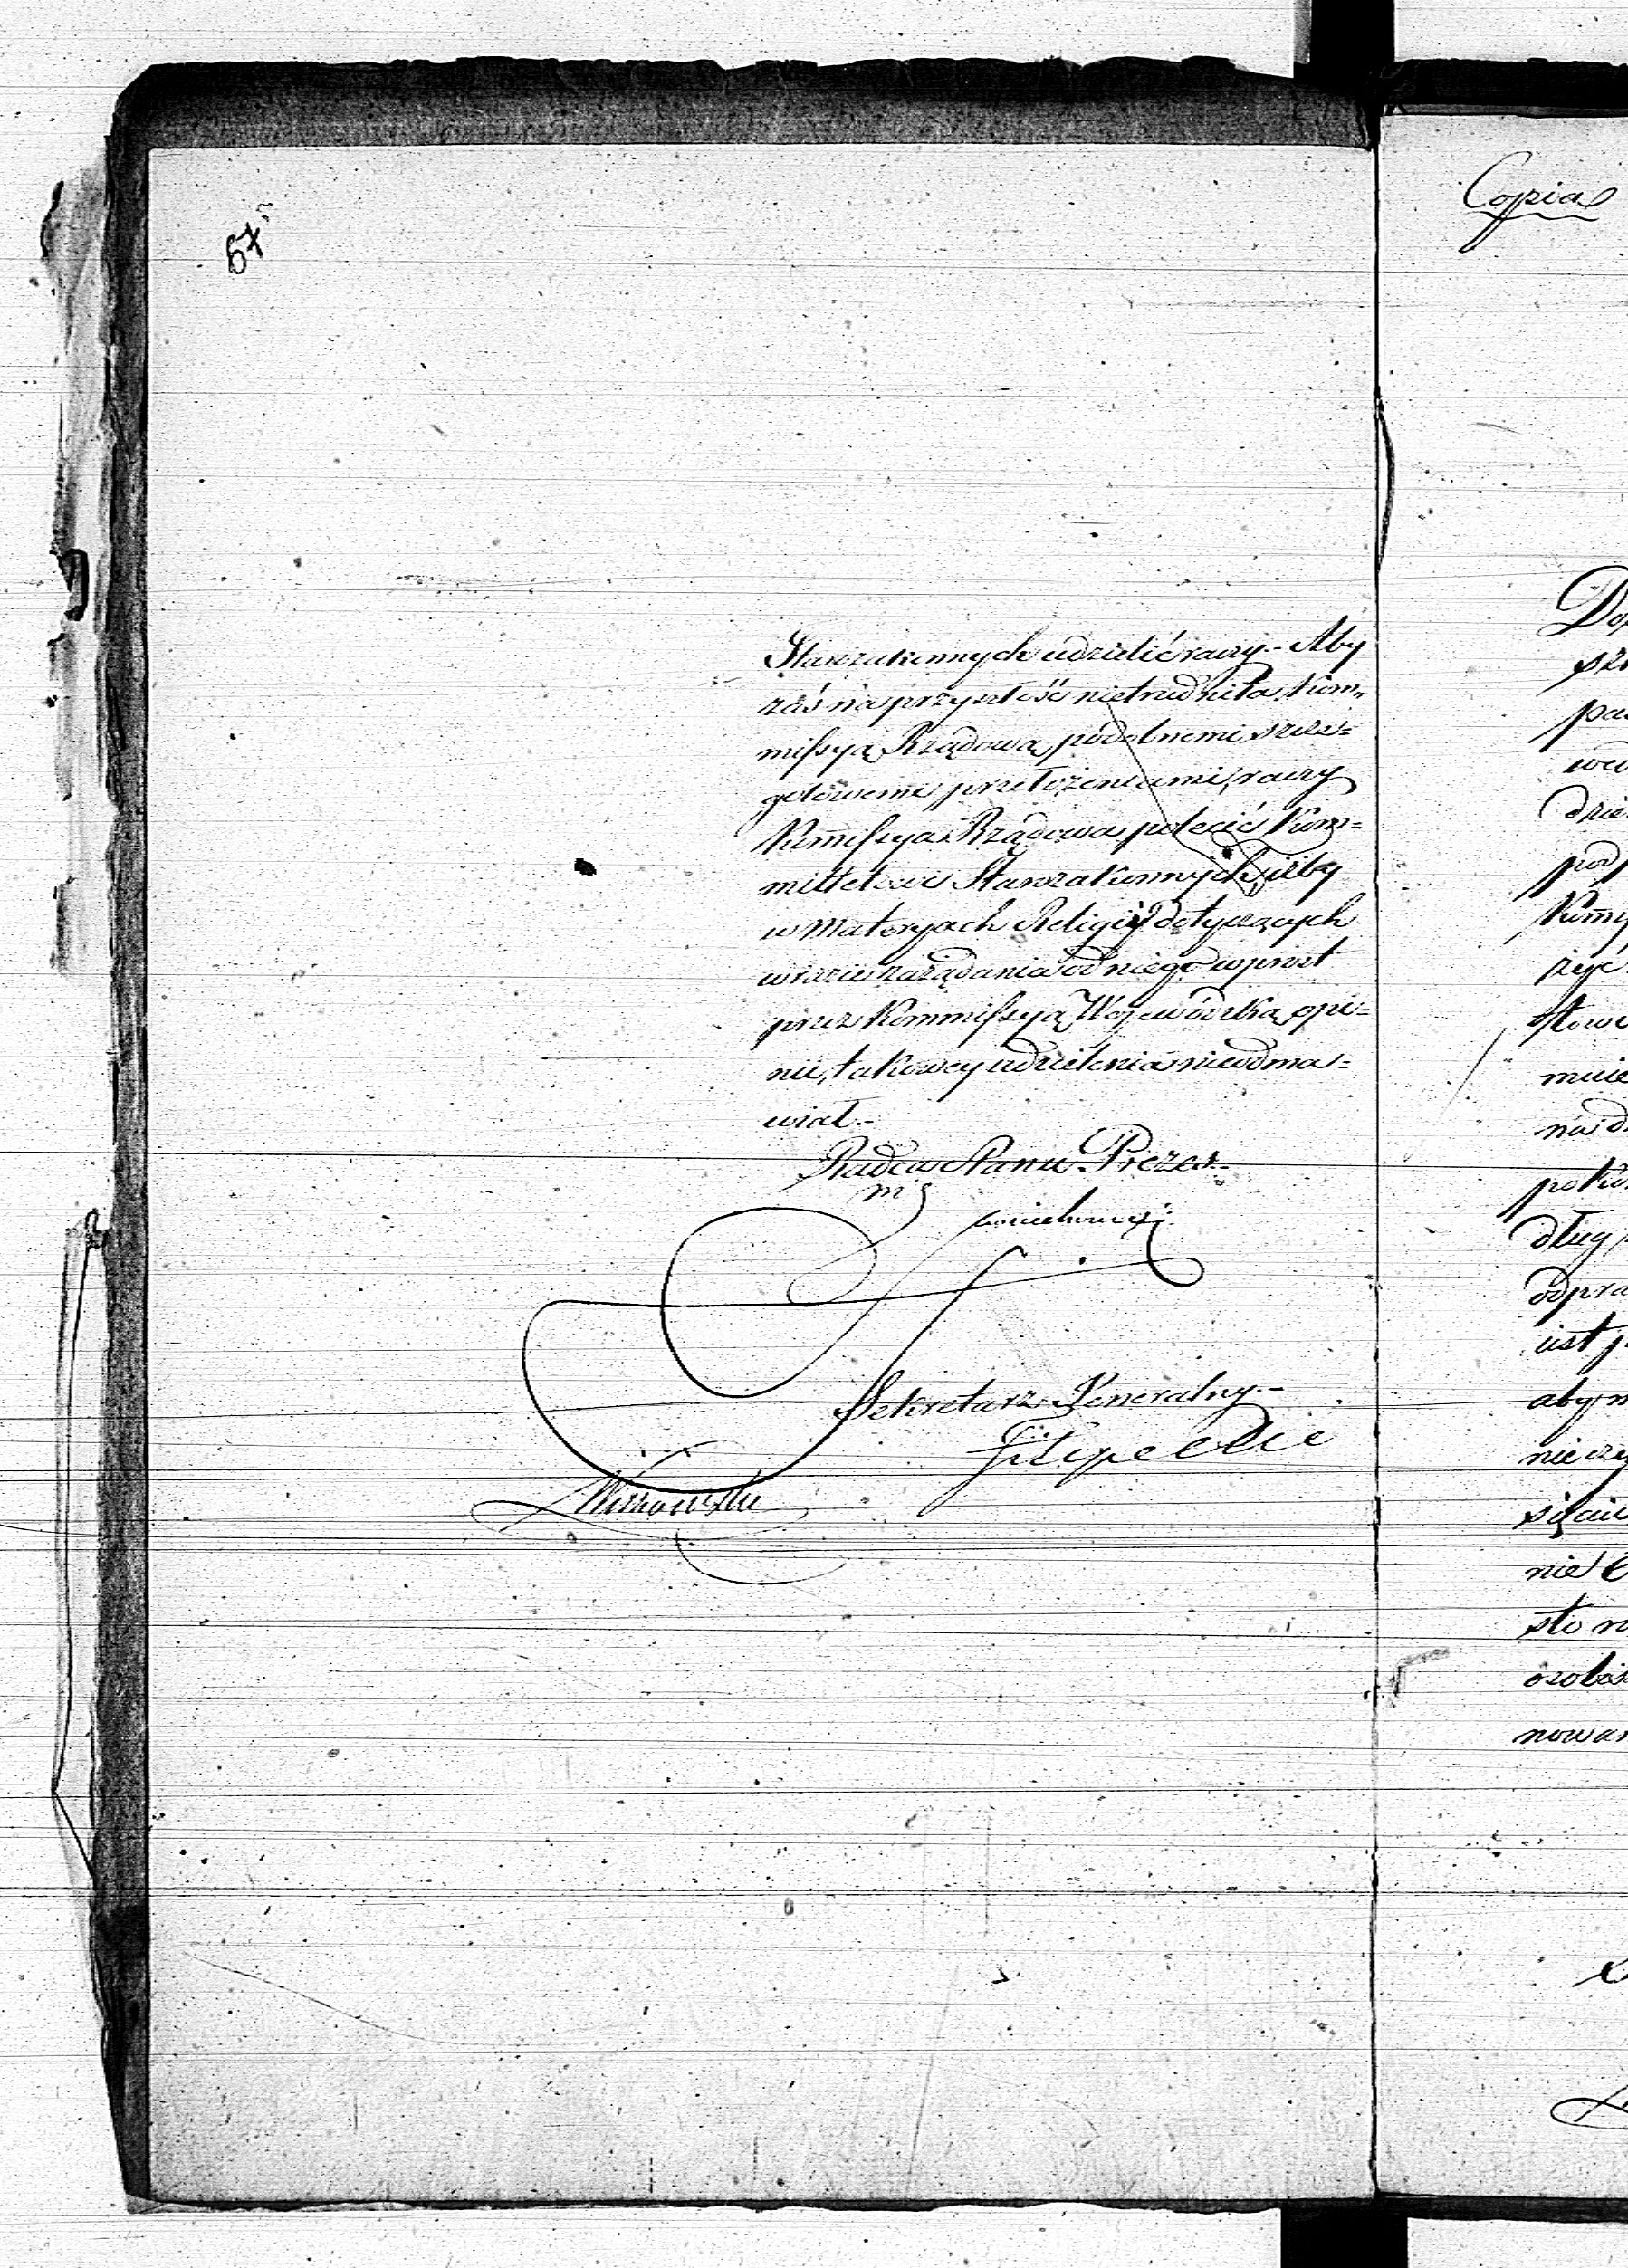 67
Starozakonnych udzielić raczy.- Aby
zaś na przyszłość nietrudniła Kom„
missyą Rządową podobnemi szcze=
gółowemi przełożeniami, raczy
Kommissya Rządowa polecić Kom=
mittetowi Starozakonnych, iżby
w Materyach Religii dotyczących
w razie zażądania od niego wprost
przez Kommissyą Wojewódzką opi=
nii, takowey udzielenia nieodma=
wiał.-
Radca Stanu Prezes.-
Sekretarz Generalny.-
Filipecki
Copia
Do
pa
dzie
pod
Kommi
życ
słowe
mnie
na d
dług
odpra
ust p
aby n
nie
sto n
osobis
nowan